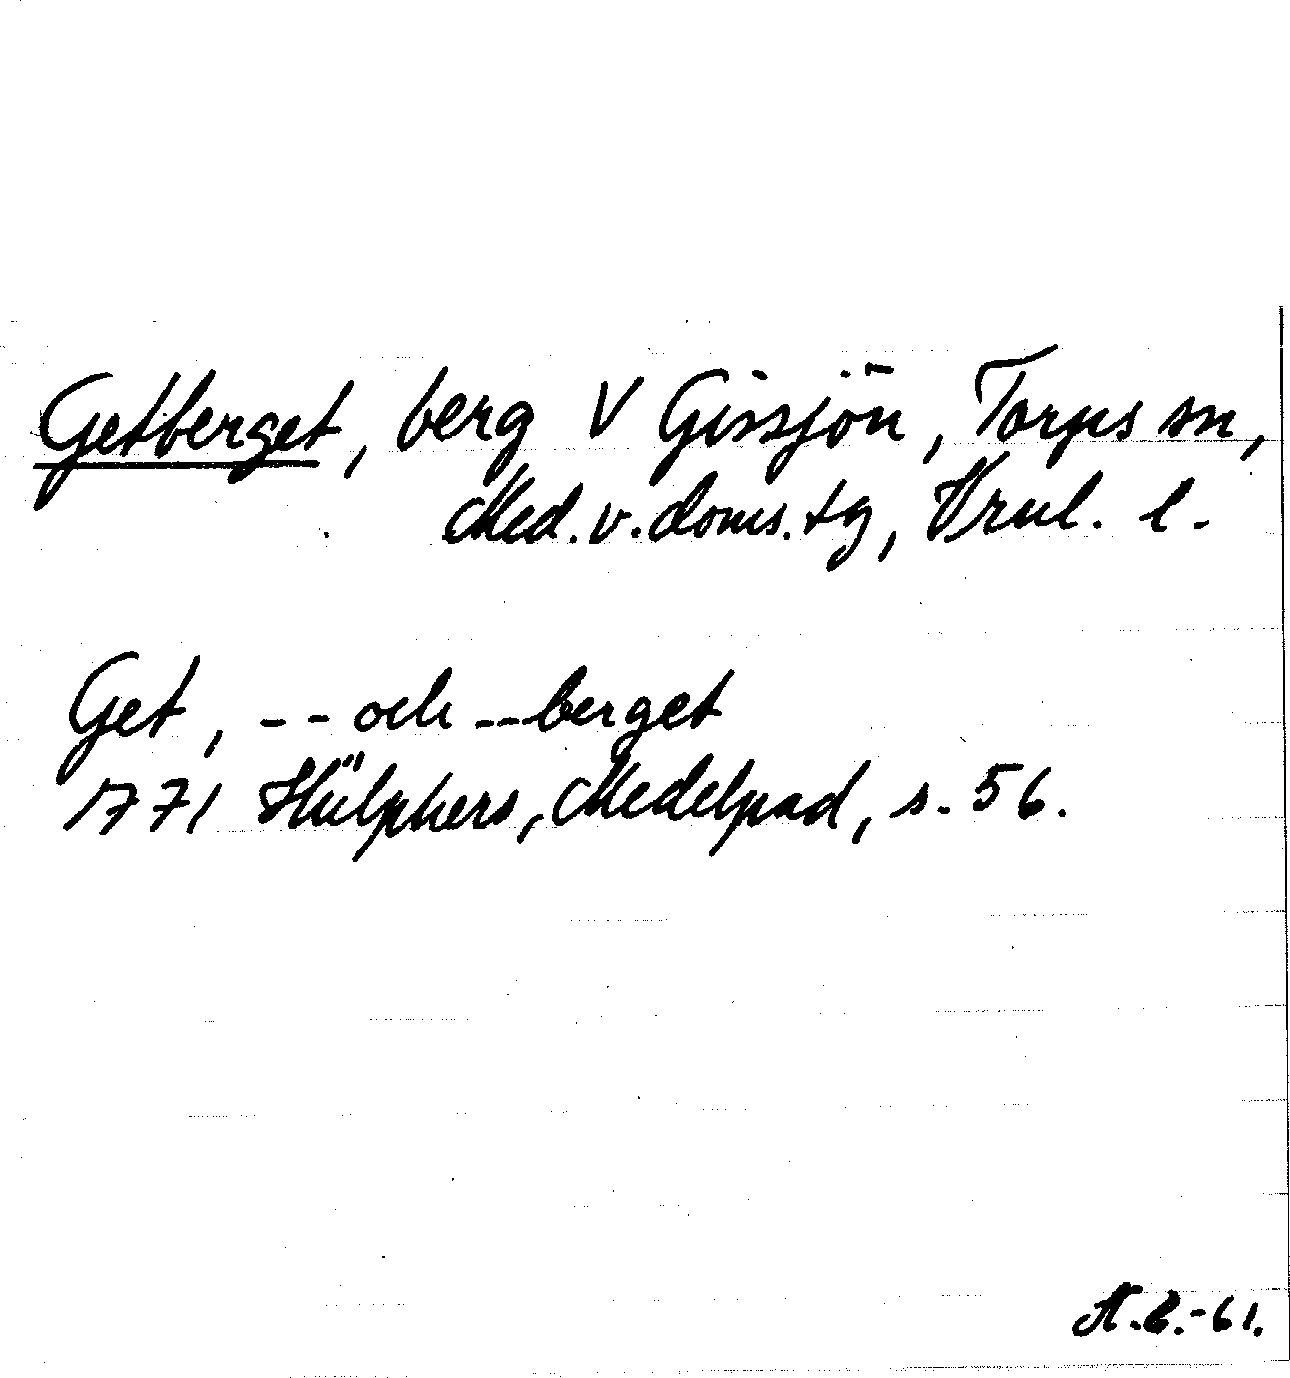 Getberget, berg V Gissjön, Torps sn,
Med. v. doms. tg, Vrnl. l.
Get, -- och --berget
1771 Hülphers, Medelpad, s. 56.
-61.